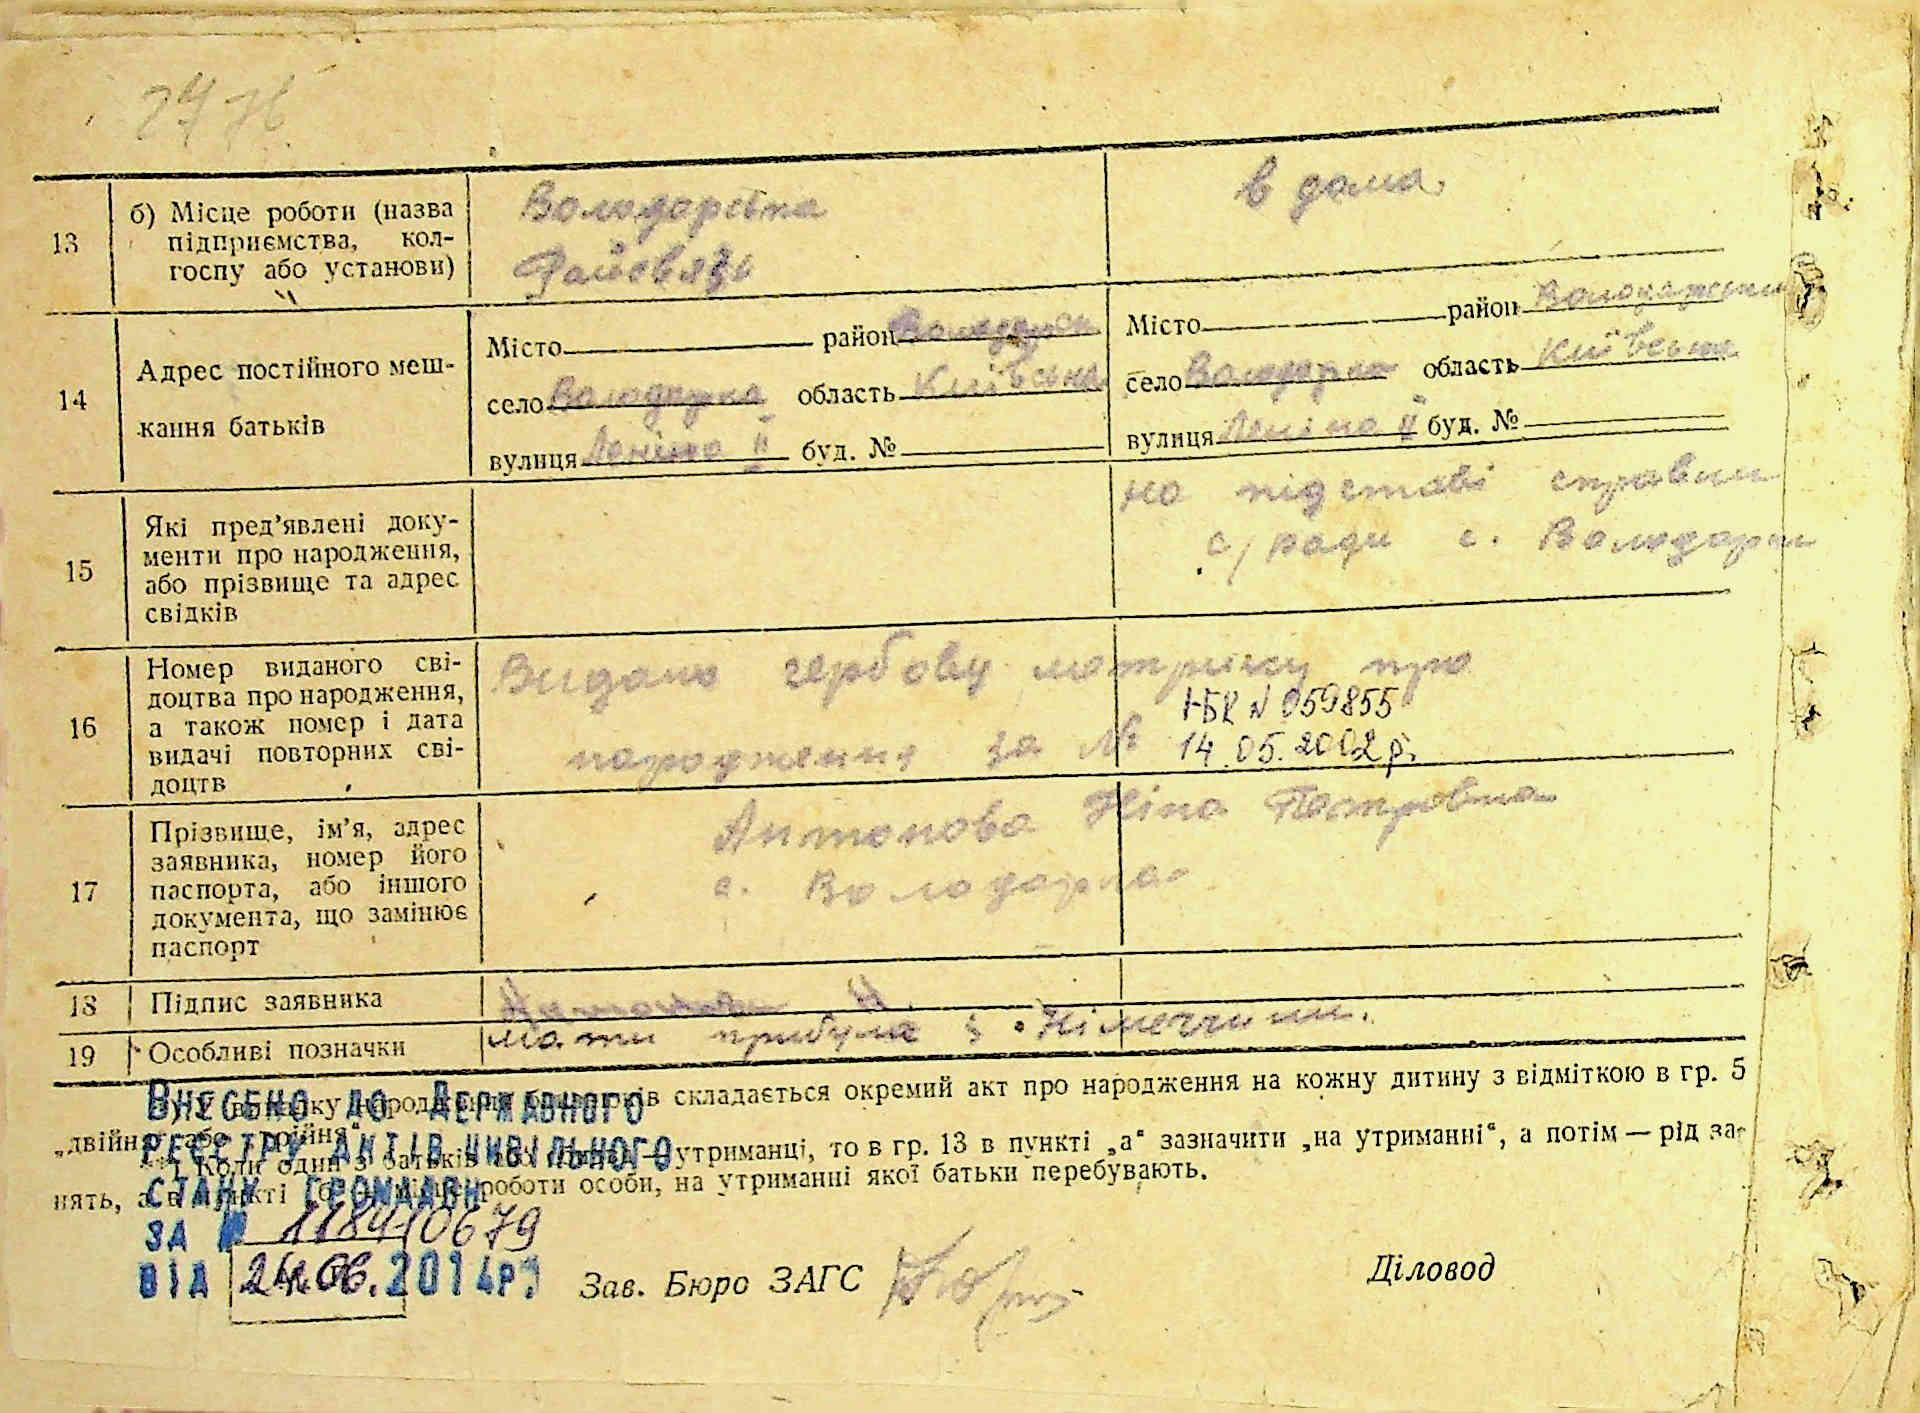 13
б) Місце роботи (назва
підприємства, кол-
госпу або установи)
Володарська
Райсвязь
в дома
14
Адрес постійного меш-
кання батьків
Місто район Володарськ
село Володарка область Київська
вулиця Леніна II буд. №
Місто район Володарський
село Володарка область Київська
вулиця Леніна II буд. №
15
Які пред’явлені доку-
менти про народження,
або прізвище та адрес
свідків
на підставі справки
с/ради с. Володарки
16
Номер виданого сві-
доцтва про народження,
а також номер і дата
видачі повторних сві-
доцтв
Видано гербову метрику про
народження за №
І-БК № 059855
14.05.2002 р.
17
Прізвище, ім’я, адрес
заявника, номер його
паспорта, або іншого
документа, що замінює
паспорт
Антонова Ніна Петровна
с. Володарка
18
Підпис заявника
Антонова Н.
19
Особливі позначки
Мати прибула з Німеччини.
складається окремий акт про народження на кожну дитину з відміткою в гр. 5
„двійня“ або „трійня“
Коли один з батьків утриманці, то в гр. 13 в пункті „а“ зазначити „на утриманні“, а потім — рід за-
нять, а в пункті роботи особи, на утриманні якої батьки перебувають.
Внесено до Державного
реєстру актів цивільного
стану громадян
за № 118410679
від 24.06.2014р.
Зав. Бюро ЗАГС
Діловод